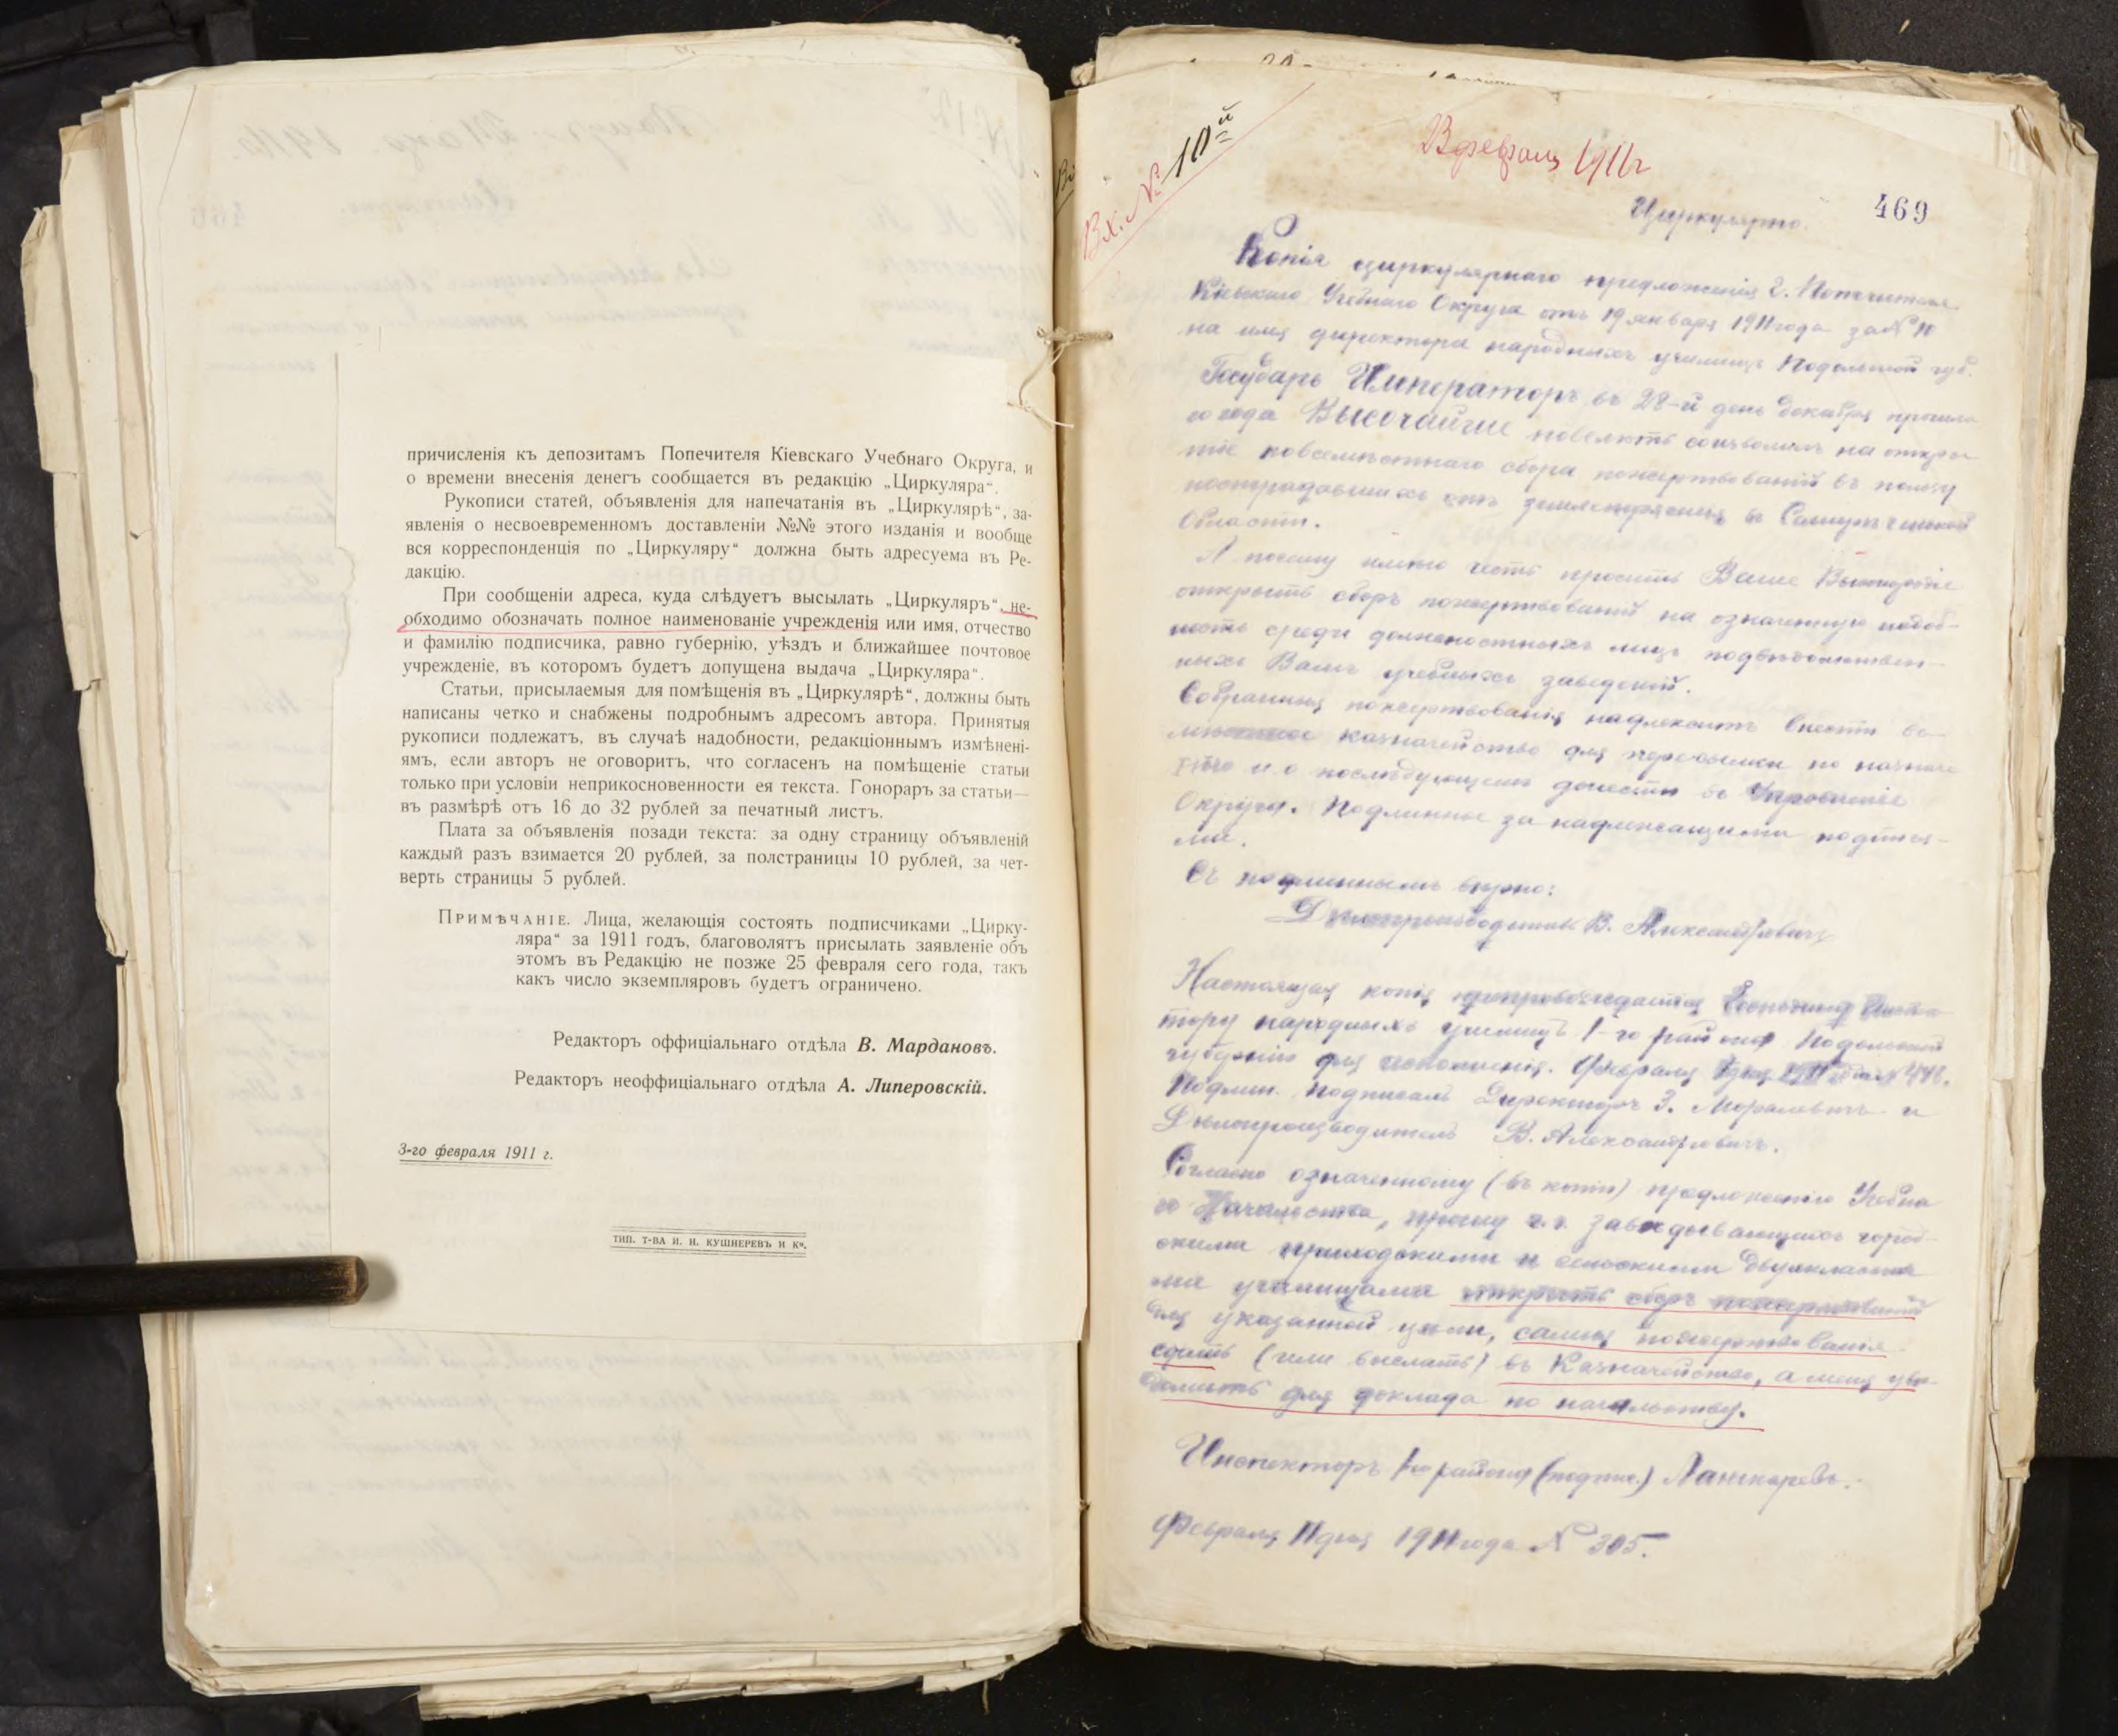 причисленія къ депозитамъ Попечителя Кіевскаго Учебнаго Округа, и
о времени внесенія денегъ сообщается въ редакцію „Циркуляра“.
Рукописи статей, объявленія для напечатанія въ „Циркулярѣ“, за-
явленія о несвоевременномъ доставленіи №№ этого изданія и вообще
вся корреспонденція по „Циркуляру“ должна быть адресуема въ Ре-
дакцію.
При сообщеніи адреса, куда слѣдуетъ высылать „Циркуляръ“, не-
обходимо обозначать полное наименованіе учрежденія или имя, отчество
и фамилію подписчика, равно губернію, уѣздъ и ближайшее почтовое
учрежденіе, въ которомъ будетъ допущена выдача „Циркуляра“.
Статьи, присылаемыя для помѣщенія въ „Циркулярѣ“, должны быть
написаны четко и снабжены подробнымъ адресомъ автора. Принятыя
рукописи подлежатъ, въ случаѣ надобности, редакціоннымъ измѣнені-
ямъ, если авторъ не оговоритъ, что согласенъ на помѣщеніе статьи
только при условіи неприкосновенности ея текста. Гонораръ за статьи—
въ размѣрѣ отъ 16 до 32 рублей за печатный листъ.
Плата за объявленія позади текста: за одну страницу объявленій
каждый разъ взимается 20 рублей, за полстраницы 10 рублей, за чет-
верть страницы 5 рублей.
Примѣчаніе. Лица, желающія состоять подписчиками „Цирку-
ляра“ за 1911 годъ, благоволятъ присылать заявленіе объ
этомъ въ Редакцію не позже 25 февраля сего года, такъ
какъ число экземпляровъ будетъ ограничено.
Редакторъ оффиціальнаго отдѣла В. Мардановъ.
Редакторъ неоффиціальнаго отдѣла А. Липеровскій.
3-го февраля 1911 г.
ТИП. Т-ВА И. Н. КУШНЕРЕВЪ И К°.
Вх. № 10й
февраля 1911 г
Циркулярно.
469
Копія циркулярнаго предложенія г. Попечителя
Кіевскаго Учебнаго Округа отъ 19 января 1911 года за № 10
на имя директора народныхъ училищъ Подольской губ.
Государь Императоръ въ 28-й день декабря прошла
го года Высочайше повелѣть соизволилъ на откры
тіе повсемѣстнаго сбора пожертвованій въ пользу
пострадавшихъ отъ землетрясенія въ Семирѣченской
Области.
А посему имѣю честь просить Ваше
открыть сборъ пожертвованій на означенную надоб-
ность среди должностныхъ лицъ подвѣдомствен-
ныхъ Вамъ учебныхъ заведеній.
Собранныя пожертвованія надлежитъ внести въ
мѣстное казначейство для пересылки по назначе
нію и о послѣдующемъ донести въ Управленіе
Округа. Подлинное за надлежащими подпися-
ми.
Съ подлиннымъ вѣрно:
Дѣлопроизводитель В. Александровичъ
Настоящая копія препровождается Господину Инспек
тору народныхъ училищъ 1-го района Подольской
губерніи для исполненія. Февраля дня 1911 года №
Подлин. подписалъ Директоръ З. и
Дѣлопроизводитель В. Александровичъ.
Согласно означенному (въ копіи) предложенію Учебна
го Начальства, прошу г.г. завѣдывающихъ город-
скими приходскими и сельскими двуклассны
ми училищами открыть сборъ пожертвованій
для указанной цѣли, самыя пожертвованія
сдать (или выслать) въ Казначейство, а меня увѣ-
домить для доклада по начальству.
Инспекторъ 1-го района (подпис.)
Февраля 11 дня 1911 года № 305.